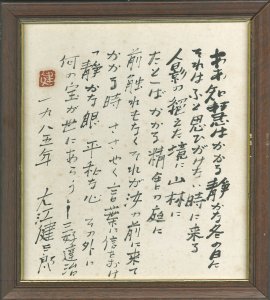 ああ智慧はかかる静かな冬の日に
それはふと思ひがけない時に来る
人影の絶えた境に山林に
たとへばかかる精舎の庭に
前触れもなくそれが汝の前に来て
かかる時 ささやく言葉に信をおけ
「静かな眼 平和な心 その外に
何の宝が世にあらう」 三好達治
一九八五年 大江健三郎